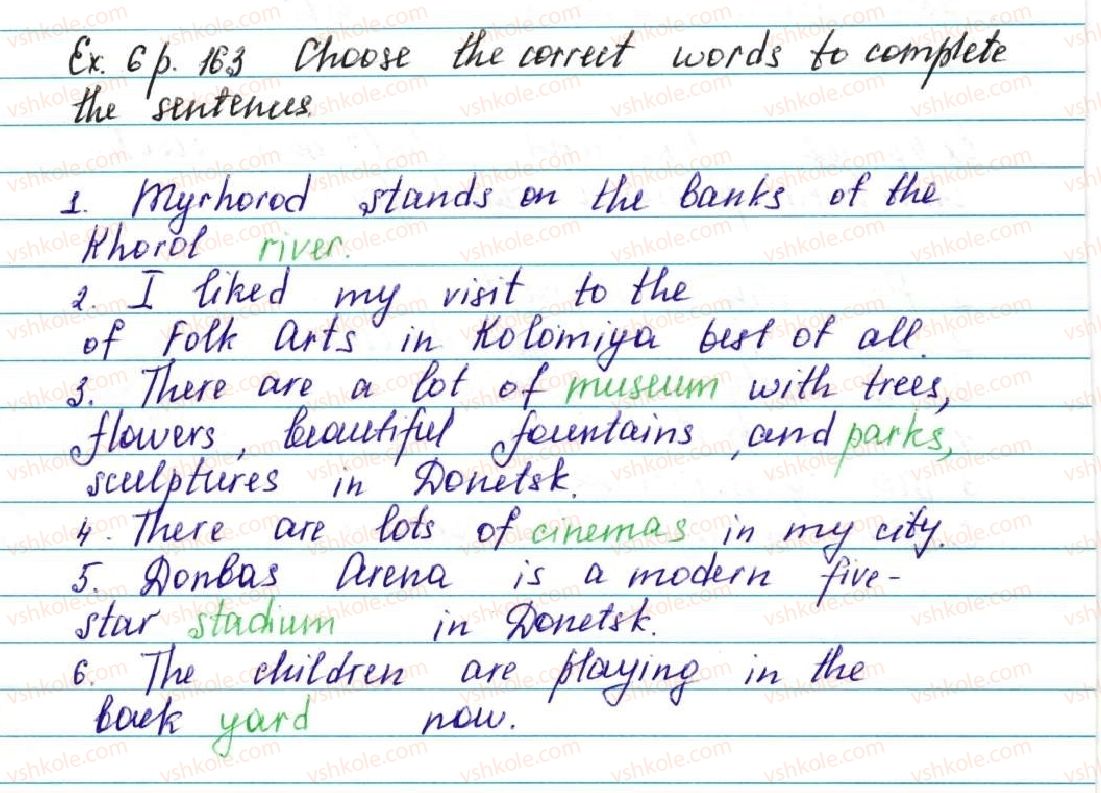 Ex. 6 p. 163 Choose the correct words to complete
the sentences.
1. Myrhorod stands on the banks of the
Khorol river.
2. I liked my visit to the
of Folk Arts in Kolomiya best of all.
3. There are a lot of museum with trees,
flowers, beautiful fountains, and parks,
sculptures in Donetsk.
4. There are lots of cinemas in my city.
5. Donbas Arena is a modern five-
star stadium in Donetsk.
6. The children are playing in the
back yard now.
vshkole.com